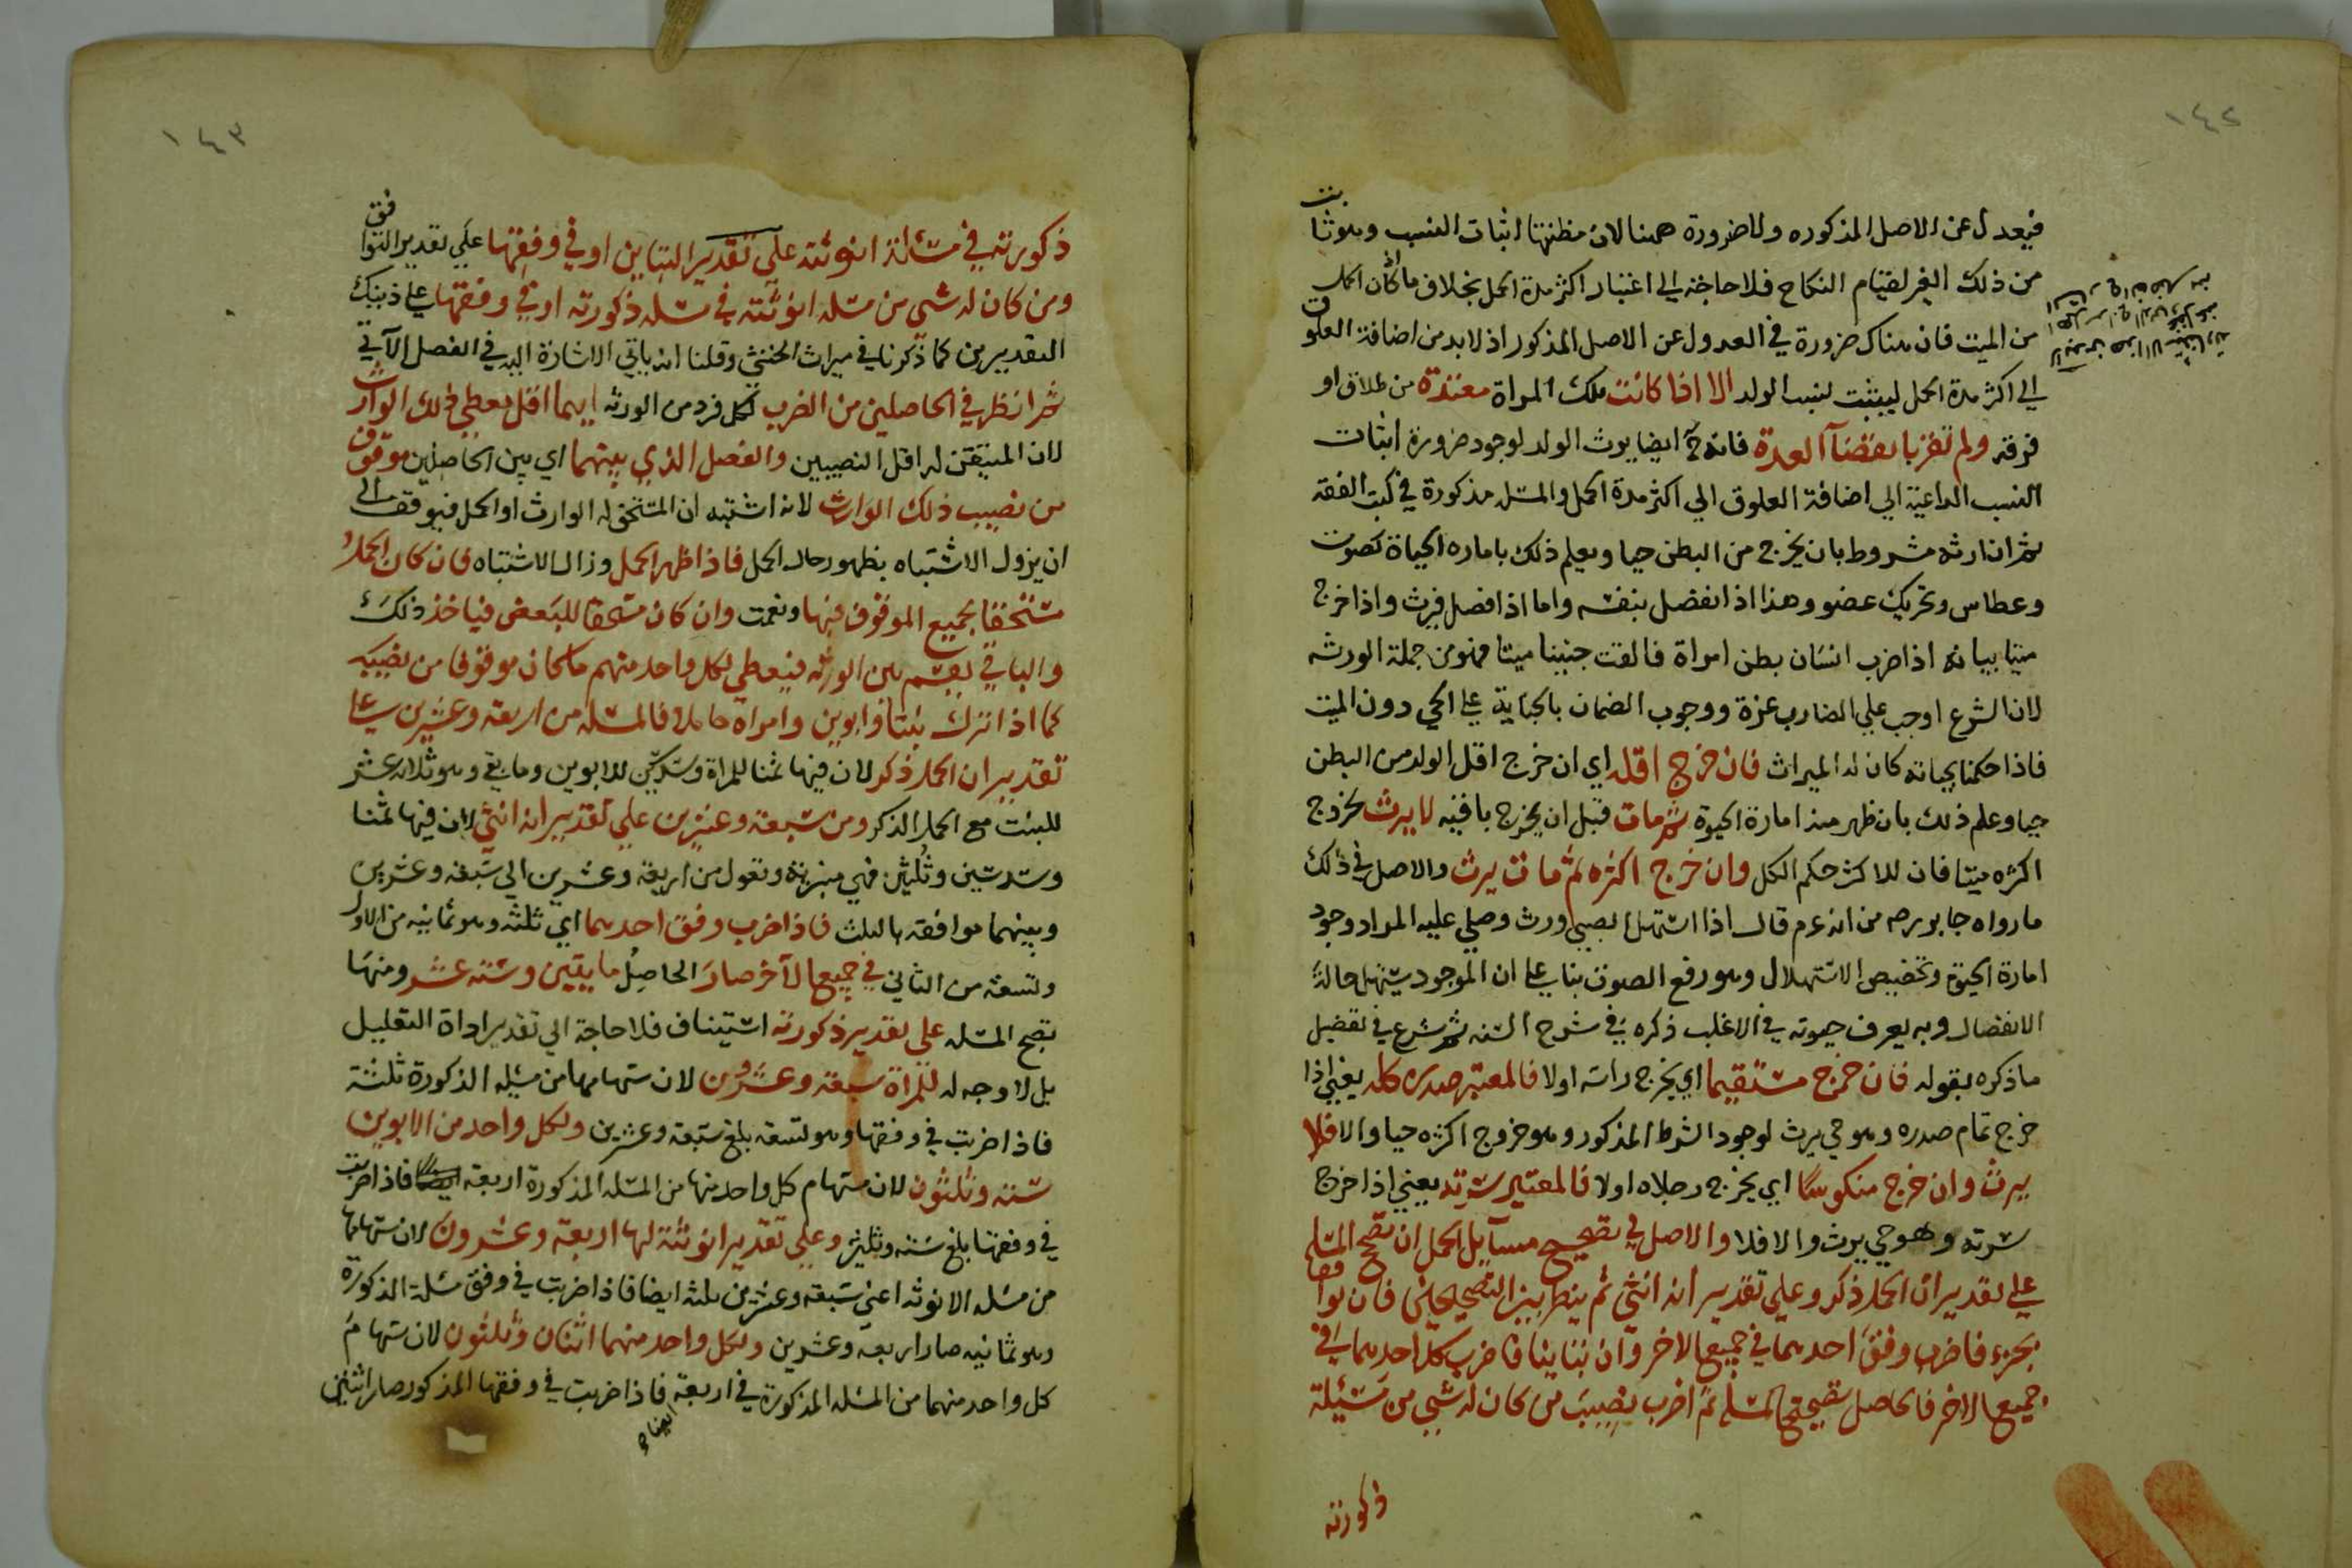 ١٤٢
فيعدل عن الاصل المذكوره ولا ضرورة ههنا لان مظنتها اثبات النسب وهو ثابت
من ذلك الغير لقيام النكاح فلا حاجة الي اعتبار اكثر مدة الحمل بخلاف ما اذا كان الحمل
من الميت فان هناك ضرورة في العدول عن الاصل المذكور اذ لابد من اضافة العلوق
الي اكثر مدة الحمل ليثبت نسب الولد الا اذا كانت تلك المراة معتدة من طلاق او
فرقه ولم تقر بانقضآ العدة فانه ح ايضا يرث الولد لوجود ضرورة اثبات
النسب الداعية الي اضافة العلوق الي اكثر مدة الحمل والمسئله مذكورة في كتب الفقه
ثم ان ارثه مشروط بان يخرج من البطن حيا ويعلم ذلك باماره الحياة كصوت
وعطاس وتحريك عضو وهذا اذا انفصل بنفسه واما اذا فصل فيرث واذا خرج
ميتا بيانه اذا ضرب انسان بطن امراة فالقت جنينا ميتا فهو من جملة الورثه
لان الشرع اوجب علي الضارب غرة ووجوب الضمان بالجناية علي الحي دون الميت
فاذا حكمنا بحياته كان له الميراث فان خرج اقله اي ان خرج اقل الولد من البطن
حيا وعلم ذلك بان ظهر منه امارة الحيوة ثم مات قبل ان يخرج باقيه لا يرث لخروج
اكثره ميتا فان للاكثر حكم الكل وان خرج اكثره ثم مات يرث والاصل في ذلك
ما رواه جابر رصه من انه عم قال اذا استهل الصبي ورث وصلي عليه المراد وجود
امارة الحيوة وتخصيص الاستهلال وهو رفع الصوت بناء علي ان الموجود يستهل حالة
الانفصال وبه يعرف حيوته في الاغلب ذكره في شرح السنه ثم شرع في تفصيل
ما ذكره بقوله فان خرج مستقيما اي يخرج راسه اولا فالمعتبر صدره كله يعني اذا
خرج تمام صدره وهو حي يرث لوجود الشرط المذكور وهو خروج اكثره حيا والا فلا
يرث وان خرج منكوسًا اي يخرج رجلاه اولا فالمعتبر سرته يعني اذا خرج
سرته وهو حي يرث والا فلا والاصل في تصحيح مسآيل الحمل ان تصح المسئله
علي تقدير ان الحمل ذكر وعلي تقدير انه انثي ثم ينظر بين التصحيحين فان توافقا
بجزء فاضرب وفق احدهما في جميع الاخر وان تباينا فاضرب كل احدهما في
جميع الاخر فالحاصل تصحيح المسئله ثم اضرب نصيب من كان له شي من مسئلة
ذكورته
١٤٣
ذكورته في مسئلة انوثته علي تقدير التباين او في وفقها علي تقدير التوافق
ومن كان له شي من مسئله انوثته في مسئله ذكورته او في وفقها علي ذينك
التقديرين كما ذكرنا في ميراث الخنثي وقلنا انه ياتي الاشارة اليه في الفصل الآتي
ثم انظر في الحاصلين من الضرب لكل فرد من الورثه ايهما اقل يعطي ذلك الوارث
لان المتيقن له اقل النصيبين والفضل الذي بينهما اي بين الحاصلين موقوف
من نصيب ذلك الوارث لانه اشتبه ان المستحق له الوارث او الحمل فيوقف الي
ان يزول الاشتباه بظهور حال الحمل فاذا ظهر الحمل وزال الاشتباه فان كان الحمل
مستحقا لجميع الموقوف فبها ونعمت وان كان مستحقا للبعض فياخذ ذلك
والباقي يقسم بين الورثه فيعطي لكل واحد منهم ما كان موقوفا من نصيبه
كما اذا ترك بنتا وابوين وامراة حاملا فالمسئله من اربعه وعشرين علي
تقدير ان الحمل ذكر لان فيها ثمنا للمراة وسدسين للابوين وما بقي وهو ثلاثه عشر
للبنت مع الحمل الذكر ومن سبعة وعشرين علي تقدير انه انثي لان فيها ثمنا
وسدسين وثلثين فهي منبرية وتعول من اربعه وعشرين الي سبعه وعشرين
وبينهما موافقه بالثلث فاذا ضرب وفق احدهما اي ثلثه وهو ثمانيه من الاول
وتسعة من الثاني في جميع الآخر صار الحاصل مايتين وسته عشر ومنها
تصح المسئله علي تقدير ذكورته استيناف فلا حاجة الي تقدير اداة التعليل
بل لا وجه له للمراة سبعة وعشرون لان سهامها من مسئله الذكورة ثلثة
فاذا ضربت في وفقها وهو تسعه بلغ سبعه وعشرين ولكل واحد من الابوين
سته وثلثون لان سهام كل واحد منها من المسئله المذكورة اربعه فاذا ضربت
في وفقها بلغ سته وثلثين وعلي تقدير انوثته لها اربعة وعشرون لان سهامها
من مسئله الانوثه اعني سبعه وعشرين ثلثه ايضا فاذا ضربت في وفق مسئلة الذكورة
وهو ثمانيه صار اربعه وعشرين ولكل واحد منهما اثنان وثلثون لان سهام
كل واحد منهما من المسئله المذكورة في اربعة فاذا ضربت في وفقها المذكور صار اثنين
ايضا